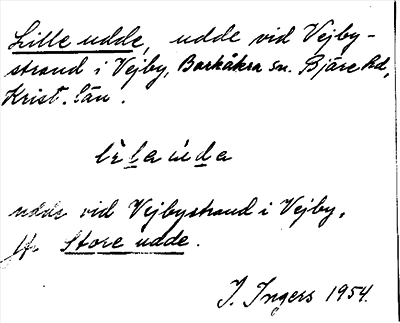 Lille udde, udde vid Vejby-
strand i Vejby, Barkåkra sn. Bjäre hd,
Krist. län.
udde vid Vejbystrand i Vejby,
jfr Store udde.
I. Ingers 1954.